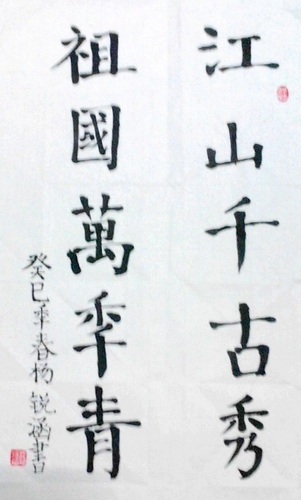 江山千古秀
祖國萬年青
癸巳年春杨锐涵書